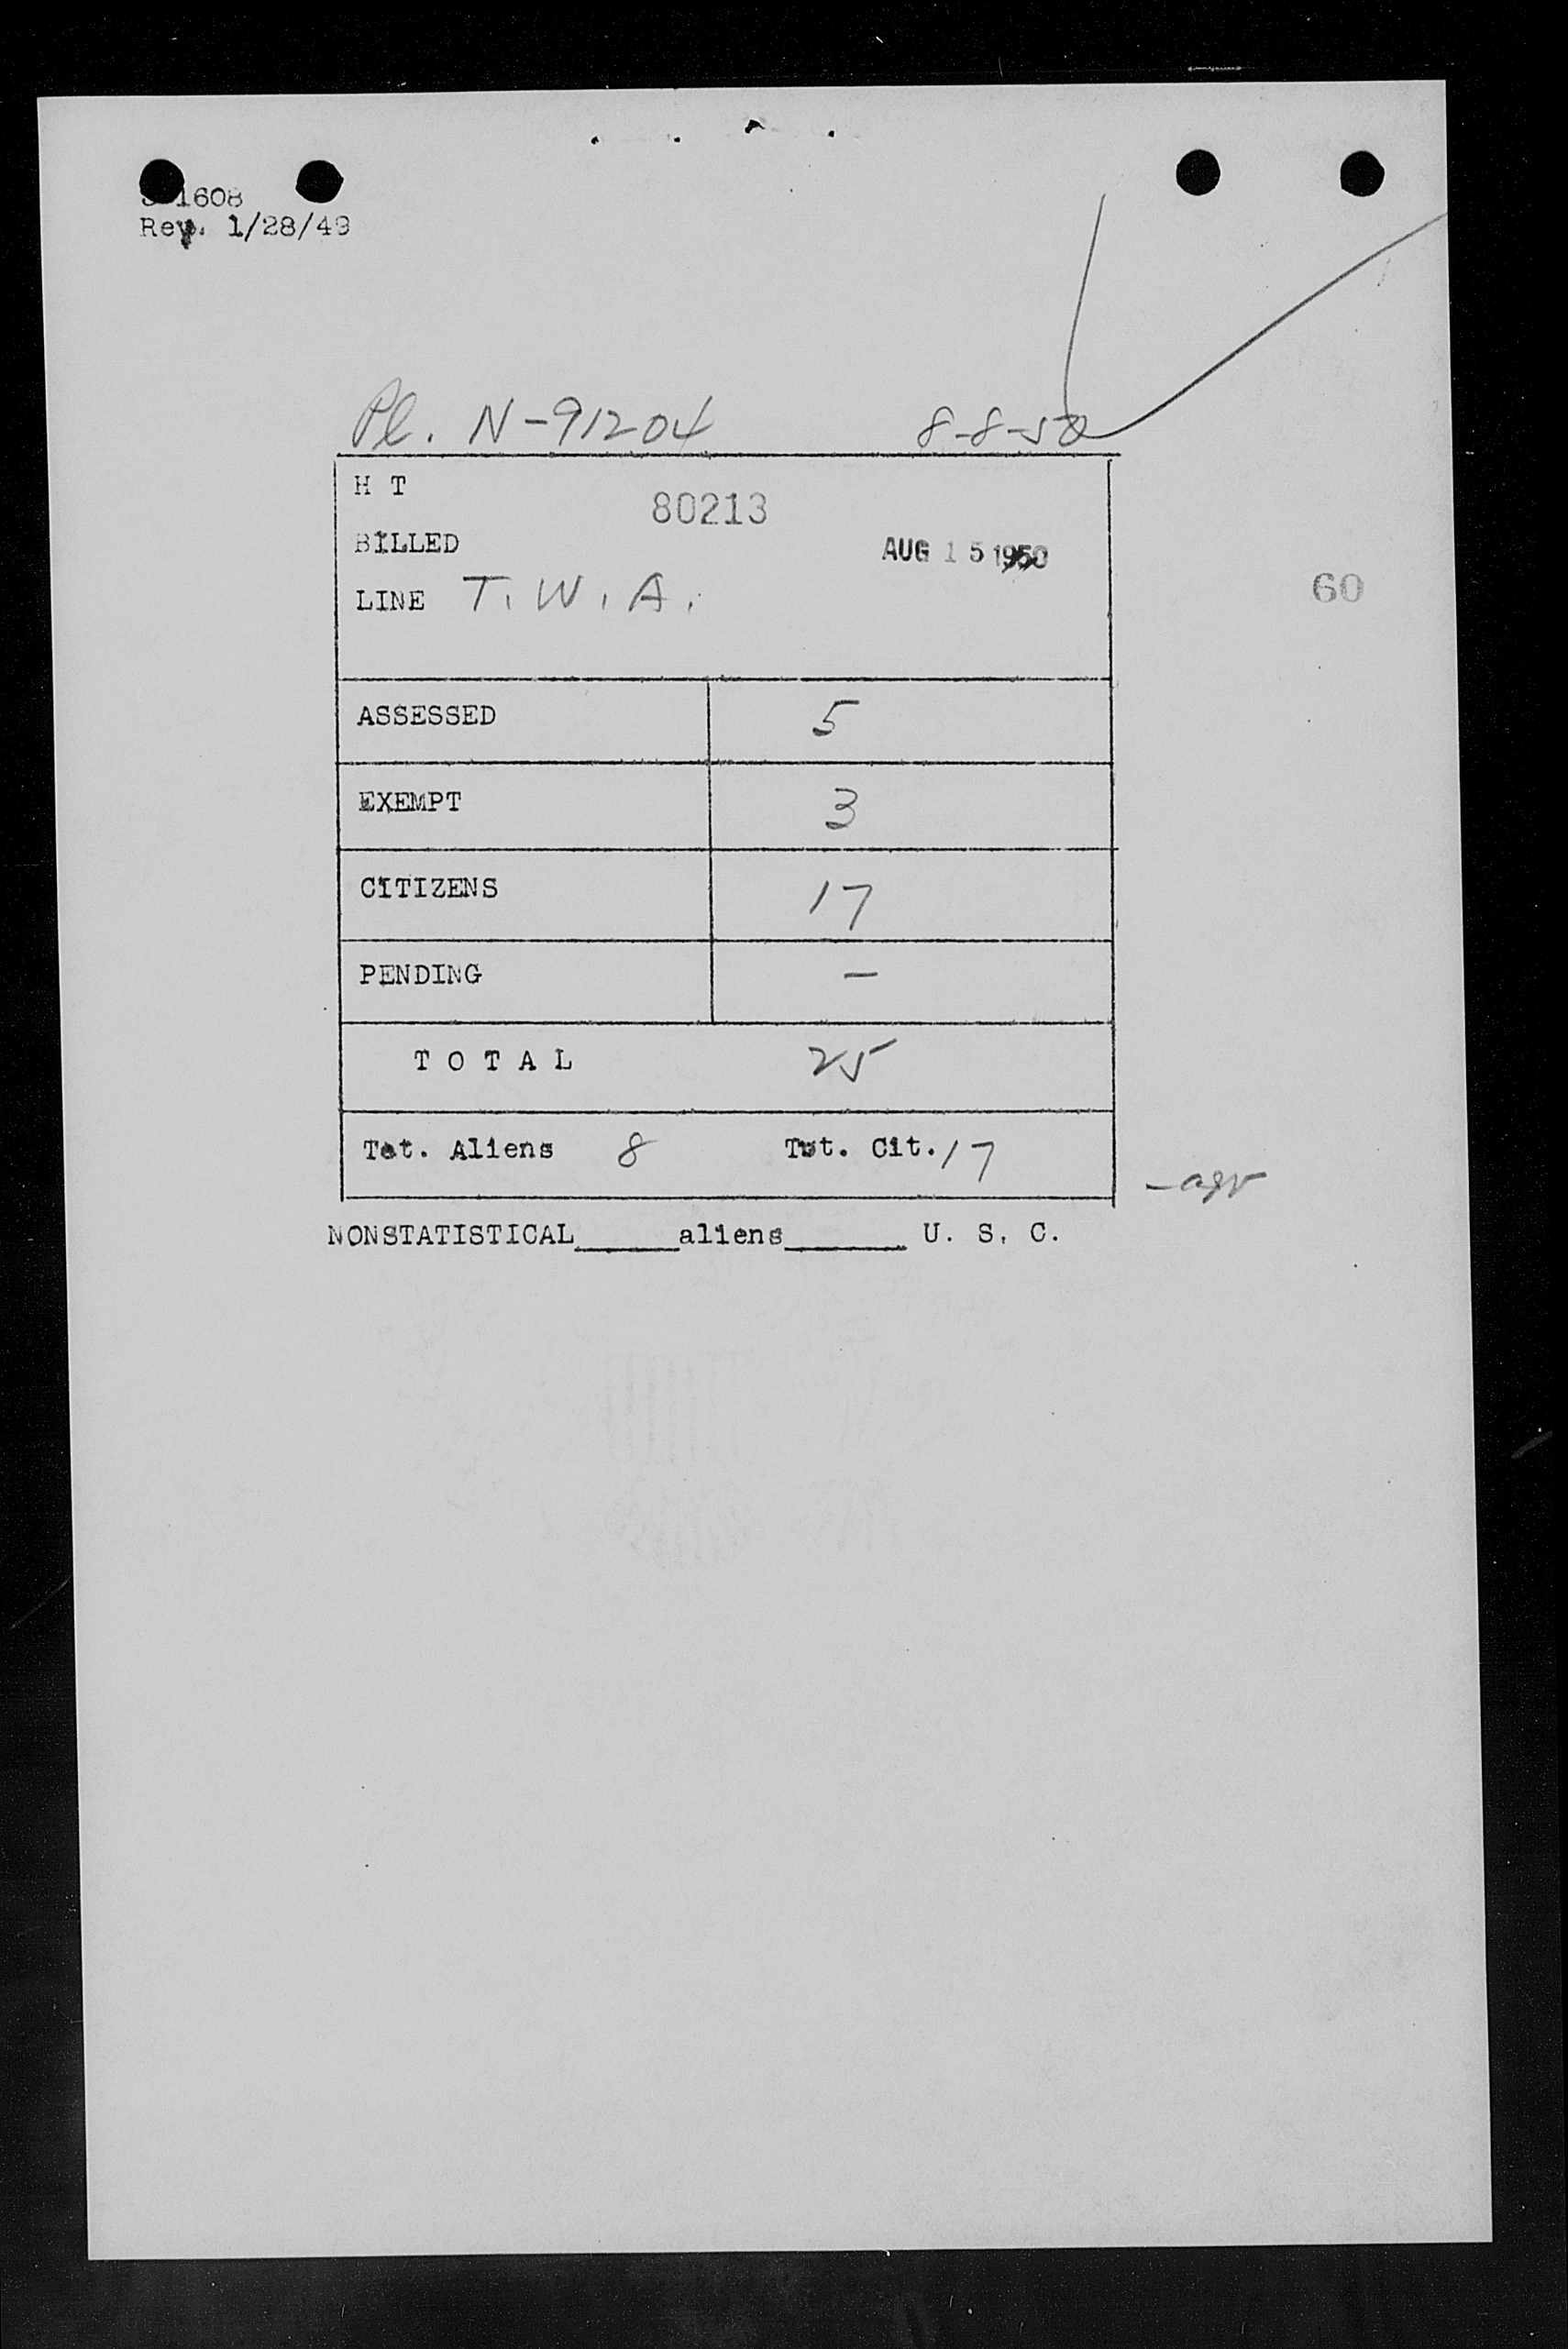 1608
Rev. 1/28/49
Pl. N-91204 8-8-50
H T
80213
BILLED AUG 15 1950
LINE T.W.A.
60
ASSESSED 5
EXEMPT 3
CITIZENS 17
PENDING -
T O T A L 25
Tot. Aliens 8 Tot. Cit. 17
NONSTATISTICAL______aliens_______ U. S. C.